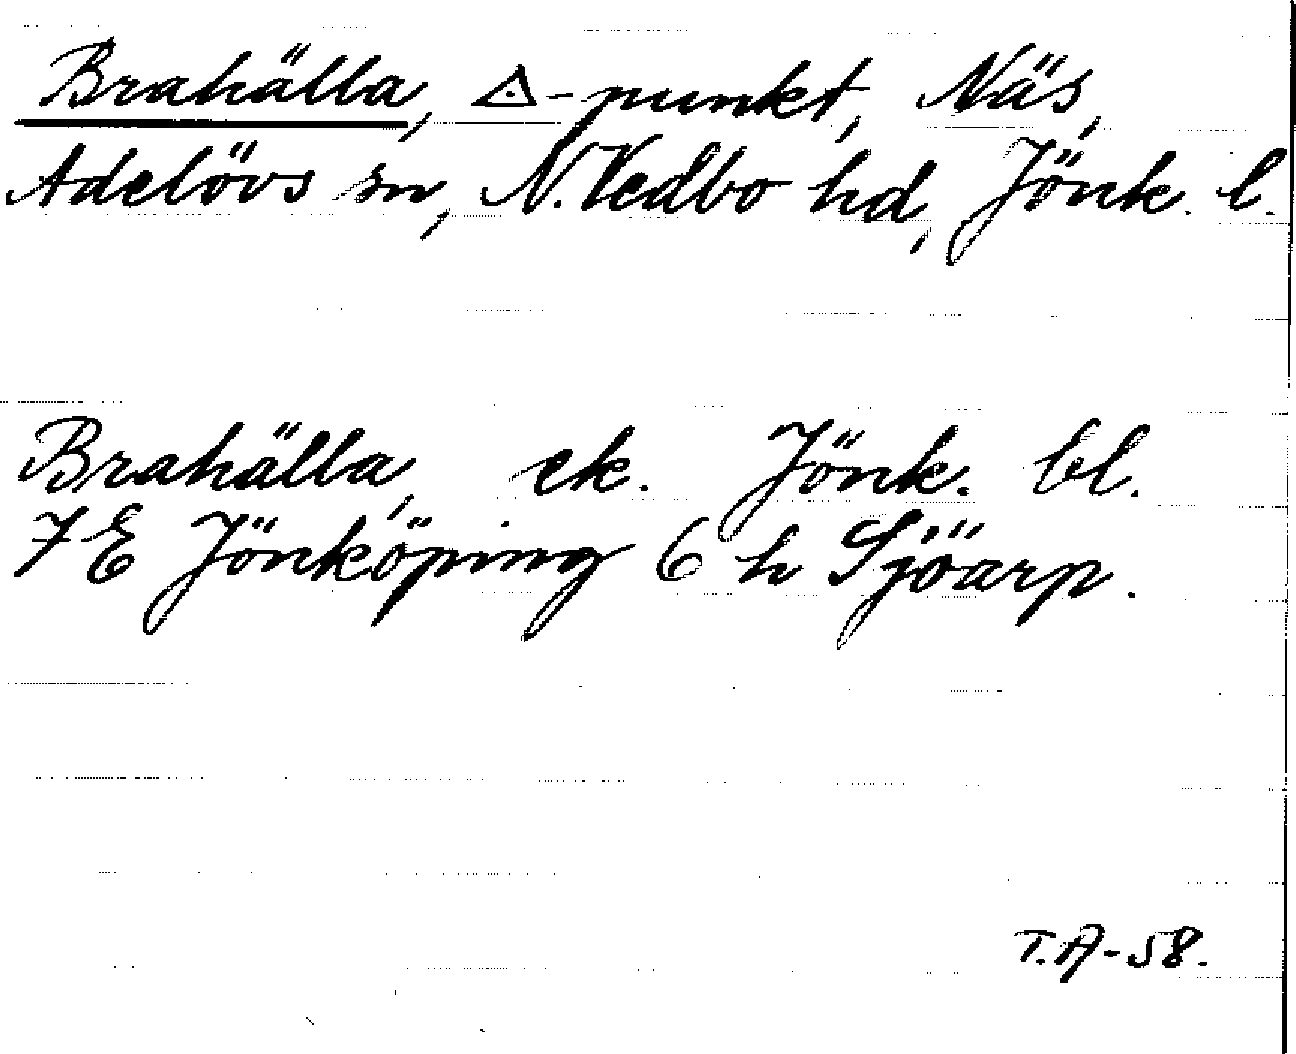 Brahälla, ⟁-punkt, Näs,
Adelövs sn, N. Vedbo hd, Jönk. l.
Brahälla, ek. Jönk. bl.
7 E Jönköping 6 h Sjöarp.
T.A-58.